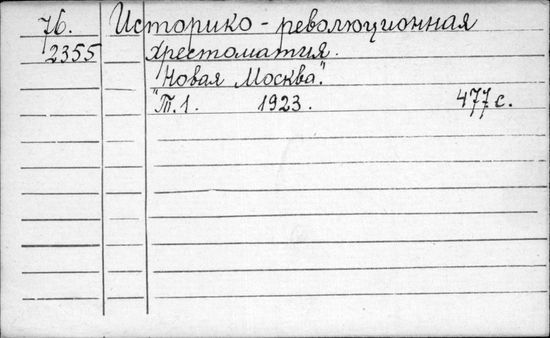 76. Историко-революционная
2355 хрестоматия.
"Новая Москва".
Т.1. 1923. 477 с.